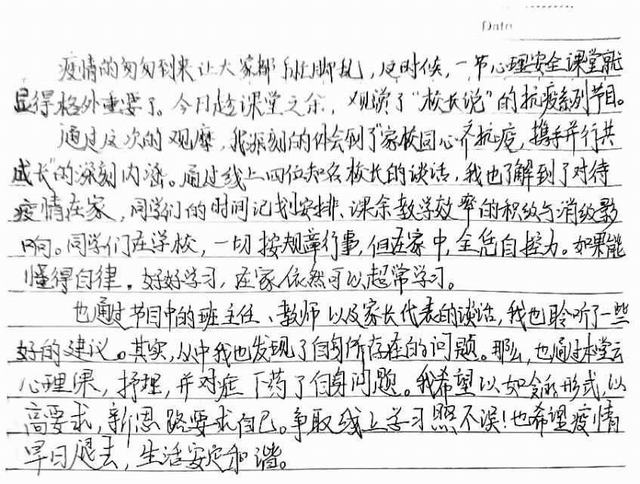 Date
疫情的匆匆到来让大家都手忙脚乱,这时候,一节心理安全课堂就
显得格外重要了。今日趁课堂之余,观演了"校长说"的抗疫系列节目。
通过这次的观摩,我深刻的体会到了"家校同心齐抗疫,携手并行共
成长"的深刻内涵。通过线上四位知名校长的谈话,我也了解到了对待
疫情在家,同学们的时间记划安排、课余教学效率的积极与消极影
响。同学们在学校,一切按规章行事,但在家中,全凭自控力。如果能
懂得自律。好好学习,在家依然可以超常学习。
也通过节目中的班主任、教师以及家长代表的谈话,我也聆听了一些
好的建议。其实,从中我也发现了自身所存在的问题。那么,也通过本堂云
心理课,抒理,并对症下药了自身问题。我希望以如今的形式,以
高要求,新思路要求自己。争取线上学习照不误!也希望疫情
早日退去,生活安定和谐。